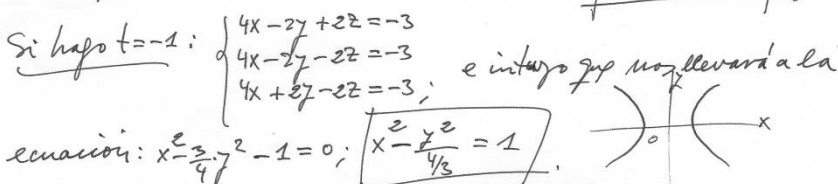 Si hago t=-1: { 4x-2y+2z=-3
4x-2y-2z=-3
4x+2y-2z=-3; e intuyo que nos llevará a la
ecuación: x²-3/4·y²-1=0; x²-y²/(4/3)=1.
y
x
0